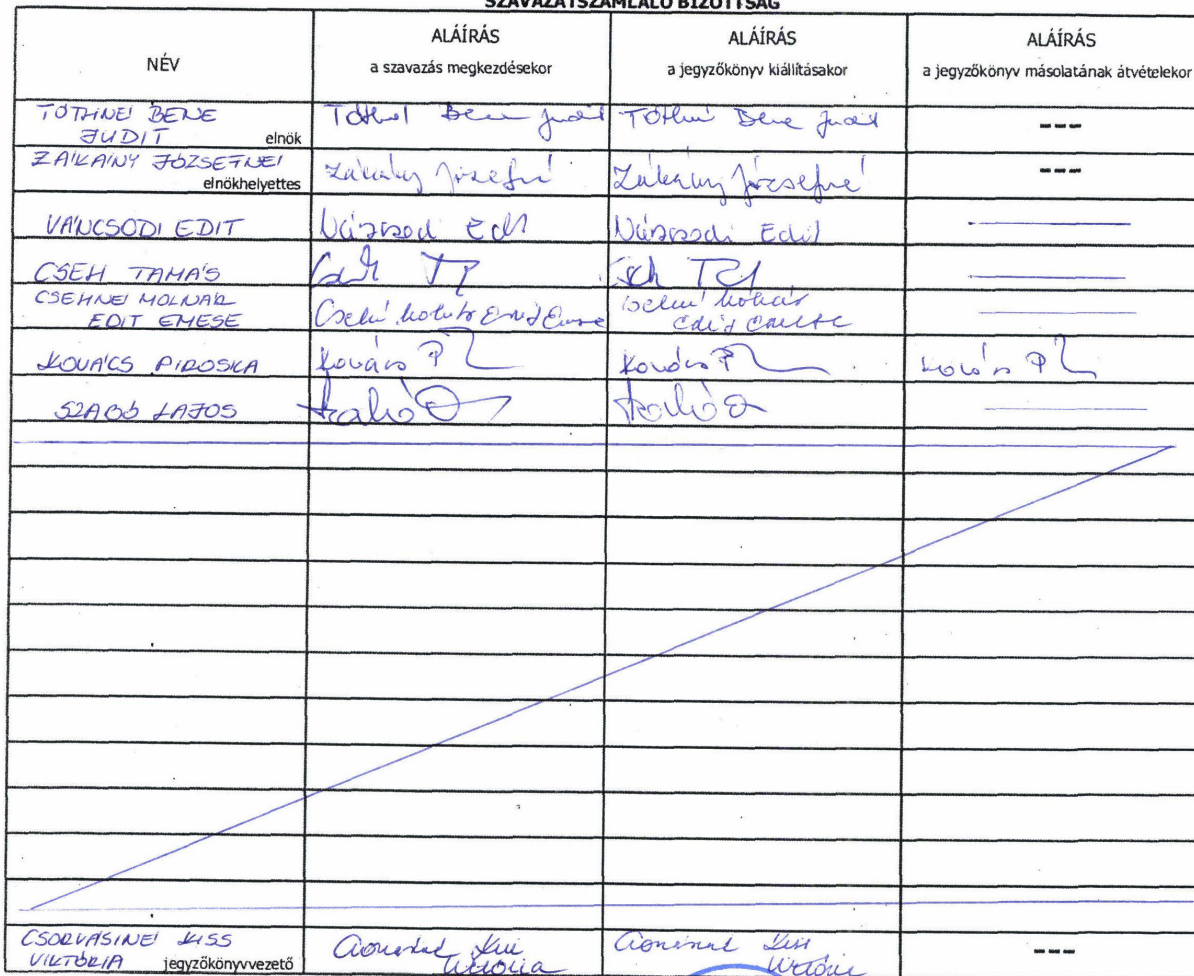 SZAVAZATSZÁMLÁLÓ BIZOTTSÁG
NÉV
ALÁÍRÁS
a szavazás megkezdésekor
ALÁÍRÁS
a jegyzőkönyv kiállításakor
ALÁÍRÁS
a jegyzőkönyv másolatának átvételekor
TÓTHNÉ BENE
JUDIT elnök
Tóthné Bene Judit
Tóthné Bene Judit
---
ZÁKÁNY JÓZSEFNÉ
elnökhelyettes
Zákány Józsefné
Zákány Józsefné
---
VÁNCSODI EDIT
Váncsodi Edit
Váncsodi Edit
CSEH TAMÁS
CSEHNÉ MOLNÁR
EDIT EMESE
Csehné Molnár Edit Emese
Csehné Molnár
Edit Emese
KOVÁCS PIROSKA
Kovács P
Kovács P
Kovács P
SZABÓ LAJOS
Szabó
Szabó
CSORVÁSINÉ KISS
VIKTÓRIA jegyzőkönyvvezető
Kiss
Viktória
Kiss
Viktória
---